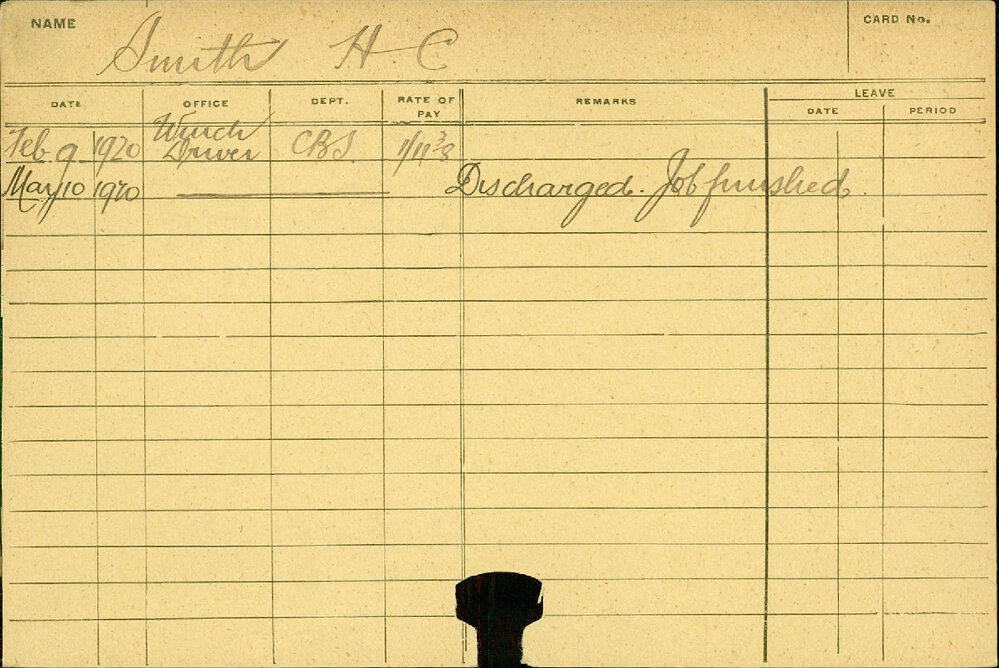 NAME Smith H C CARD No.
DATE OFFICE DEPT. RATE OF PAY REMARKS LEAVE
DATE PERIOD
Feb 9 1920 Winch Driver CBS 1/11 3/8
May 10 1920 Discharged. Job finished.